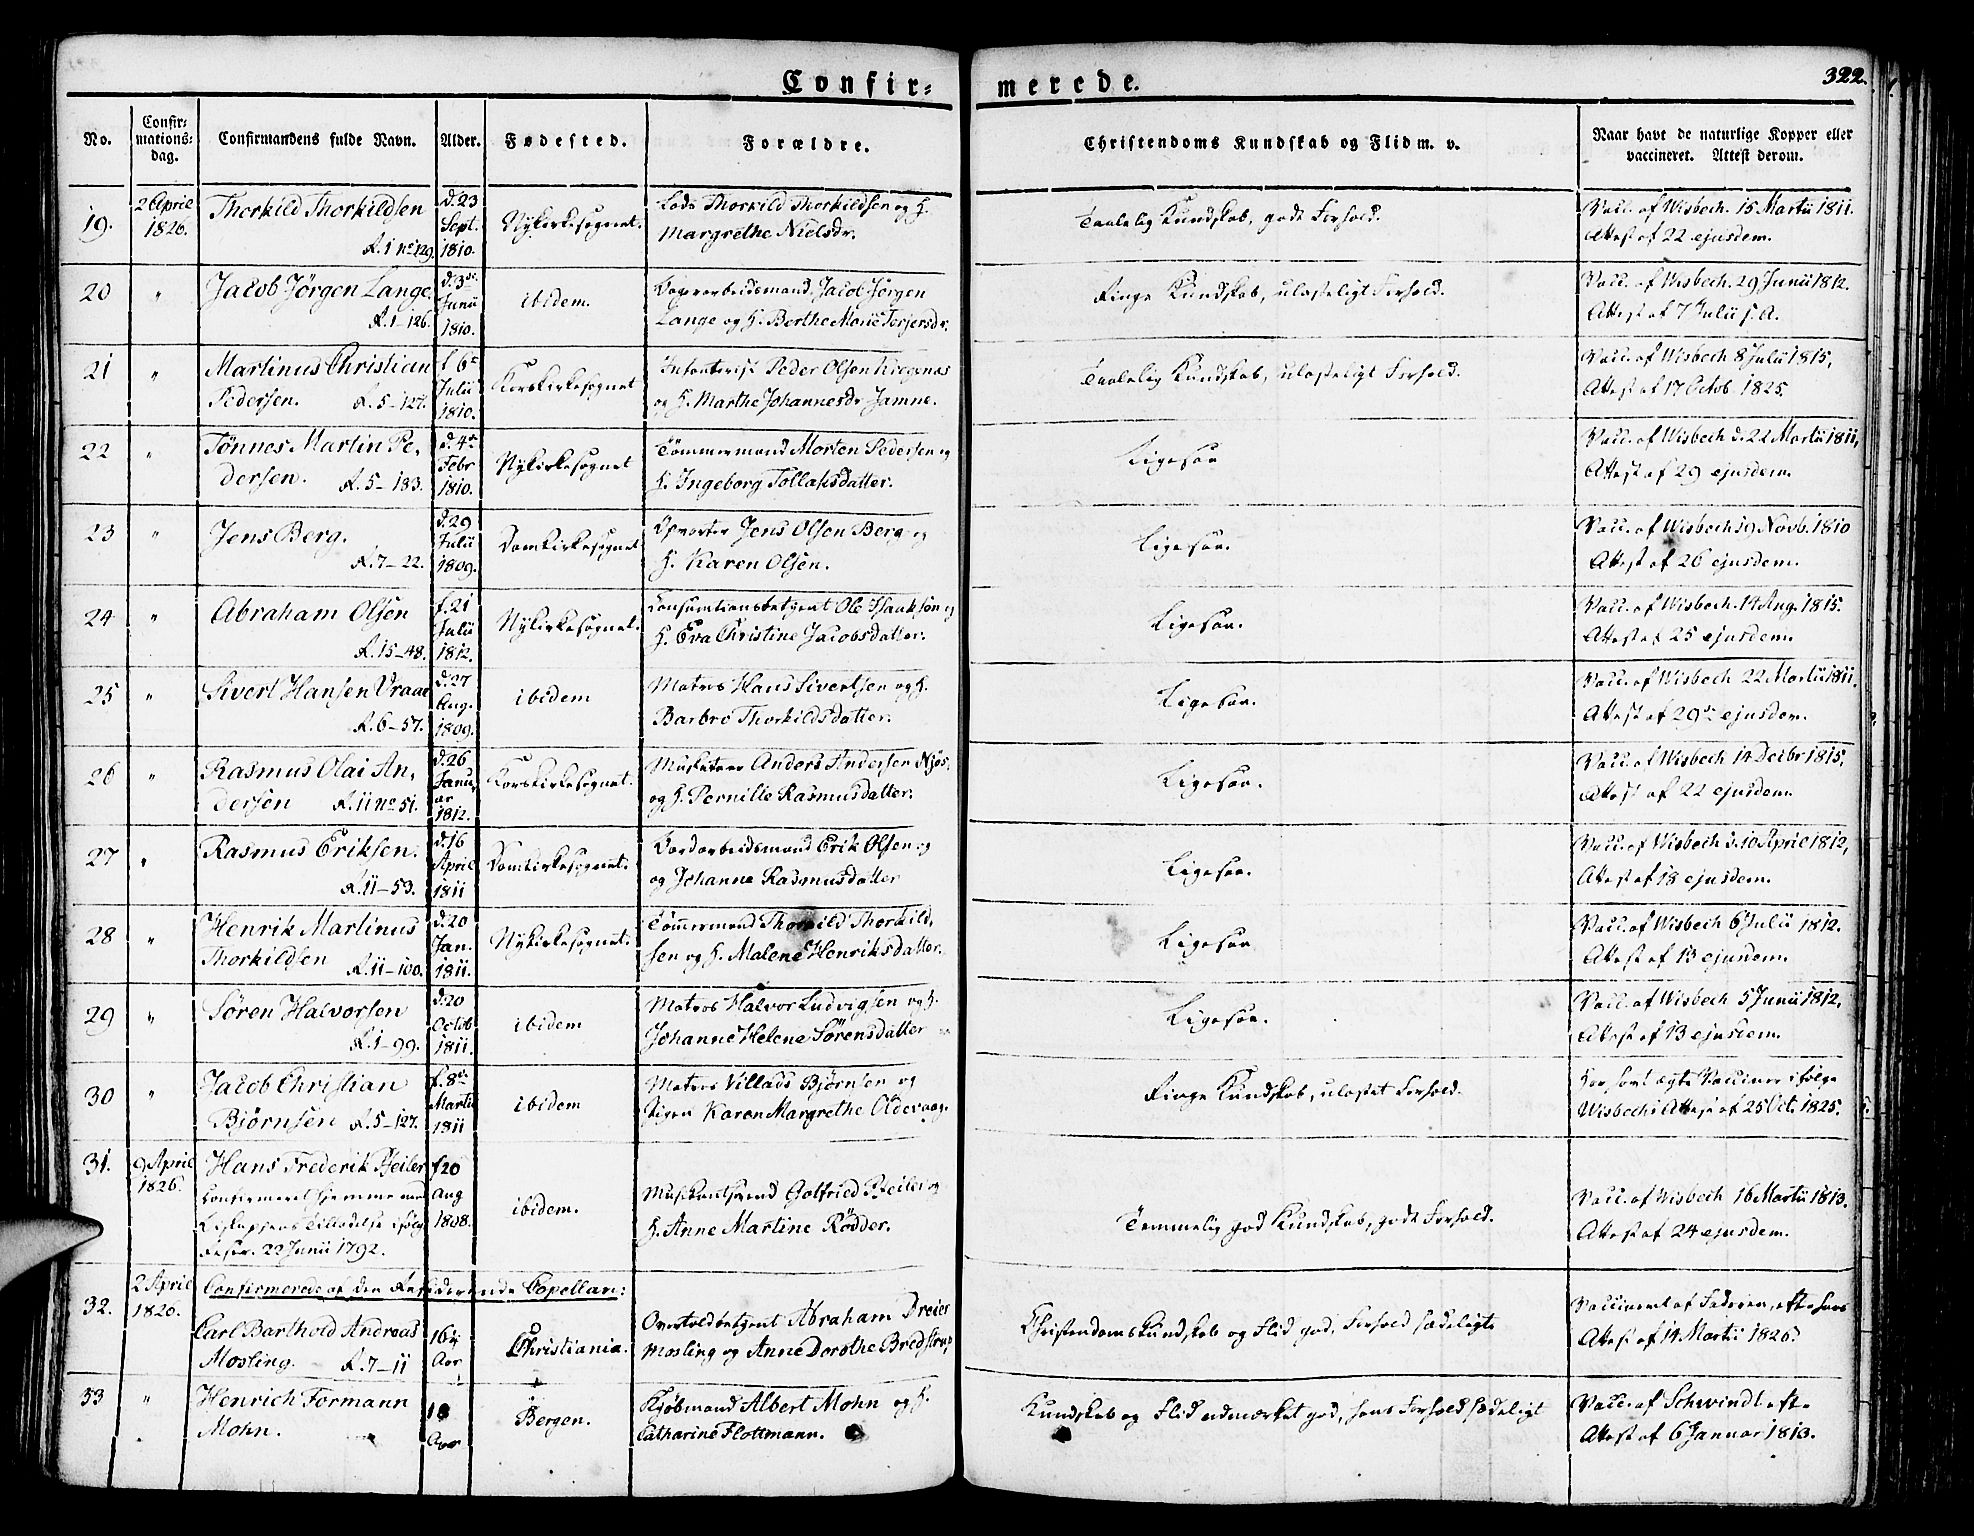 Confir=
merede.
322.
No.
Confir=
mations=
dag.
Confirmandens fulde Navn.
Alder.
Fødested.
Forældre.
Christendoms Kundskab og Flid m. v.
Naar havt de naturlige Kopper eller
vaccineret. Attest derom.
19.
2 April
1826.
Thorkild Thorkildsen
A. 1 no 129.
d. 23
Sept.
1810.
Nykirkesognet.
Thorkild Thorkildsen og H.
Margrethe Nielsdr.
Taalelig Kundskab, godt Forhold.
Vacc. af Wisbech. 15 Martii 1811.
Attest af 22 ejusdem.
20
"
Jacob Jörgen Lange.
A. 1 - 126.
d. 3de
Junii
1810.
ibidem.
Jacob Jörgen
Lange og H. Berthe Marie Terjersdr.
Ringe Kundskab, ulasteligt Forhold.
Vacc. af Wisbech. 29 Junii 1812.
Attest af 7 Julii s. A.
21
"
Martinus Christian
Pedersen. A. 5 - 127.
f. 6te
Julii
1810.
Korskirkesognet
Infanterist Peder Olsen
og H. Marthe Johannesdr Jamne.
Taalelig Kundskab, ulasteligt Forhold.
Vacc. af Wisbech 8 Julii 1815,
Attest af 17 Octob. 1825.
22
"
Tönnes Martin Pe,
dersen. A. 5 - 183.
d. 4de
Febr
1810.
Nykirkesognet
Tömmermand Morten Pedersen og
H. Ingeborg Tollaksdatter.
Ligesaa
Vacc. af Wisbech d. 22 Martii 1811,
Attest af 29 ejusdem.
23
"
Jens Berg.
A. 7 - 22.
d. 29
Julii
1809.
Domkirkesognet
Opvarter Jens Olsen Berg og
H. Karen Olsen.
Ligesaa.
Vacc. af Wisbech 19 Novb. 1810
Attest af 26 ejusdem.
24
"
Abraham Olsen
A. 15 - 48.
f. 21
Julii
1812.
Nykirkesognet.
Consumtionsbetjent Ole Isaaksen og
H. Eva Christine Jacobsdatter.
Ligesaa.
Vacc. af Wisbech. 14 Aug. 1815.
Attest af 25 ejusdem.
25
"
Sivert Hansen
A. 6 - 57.
d. 27
Aug.
1809.
ibidem
Matros Hans Sivertsen og H.
Barbro Thorkildsdatter.
Ligesaa.
Vacc. af Wisbech 22 Martii 1811.
Attest af 29de ejusdem.
26
"
Rasmus Olai An,
dersen A. 11 no 51.
d. 26
Janu,
ar
1812.
Korskirkesognet.
Musketeer Anders Andersen
og H. Pernille Rasmusdatter.
Ligesaa.
Vacc. af Wisbech 14 Decbr 1815,
Attest af 22 ejusdem.
27
"
Rasmus Eriksen.
A. 11 - 53.
d. 16
April
1811
Domkirkesognet.
Erik Olsen og
og Johanna Rasmusdatter
Ligesaa.
Vacc. af Wisbech d. 10 April 1812,
Attest af 18 ejusdem.
28
"
Henrik Martinus
Thorkildsen A. 11 - 100.
d. 20
Jan.
1811.
Nykirkesognet.
Tömmermand Thorkild Thorkild,
sen og H. Malene Henriksdatter.
Ligesaa
Vacc. af Wisbech 6 Julii 1812.
Attest af 13 ejusdem.
29
"
Sören Halvorsen
A. 1 - 99.
d. 20
Octob
1811.
ibidem
Matros Halvor Ludvigsen og H.
Johanne Helene Sörensdatter
Ligesaa.
Vacc. af Wisbech 5 Junii 1812,
Attest af 13 ejusdem.
30
"
Jacob Christian
Björnsen A. 5 - 127.
f. 8de
Martii
1811
ibidem
Matros Villads Björnsen og
Pigen Karen Margrethe Oldevaag.
Ringe Kundskab, ulastet Forhold.
Har havt ægte Vacciner ifølge
Wisbechs Attest af 25 Oct. 1825.
31.
9 April
1826.
Hans Frederik Pfeiler
Confirmeret hjemme med
Biskoppens Tilladelse ifölge
Rescr. 22 Junii 1792.
f 20
Aug
1808.
ibidem.
Musikantsvend Gotfried Pfeiler og
H. Anne Martine Rödder.
Temmelig god Kundskab, godt Forhold.
Vacc. af Wisbech 16 Martii 1813.
Attest af 24 ejusdem.
32.
2 April
1826.
Confirmerede af den Residerende Capellan:
Carl Barthold Andreas
Mosling. A. 7 - 11
16 1/4
Aar
Christiania.
Overtoldbetjent Abraham Dreier
Mosling og Anne Dorothe Bredstrup
Christendomskundskab og Flid god, Forhold sædeligt
Vaccineret af Faderen, efter hans
Attest af 14 Martii 1826.
33
"
Henrich Formann
Mohn.
Aar
Bergen.
Kjöbmand Albert Mohn og H.
Catharine Flottmann.
Kundskab og Flid udmærket god, hans Forhold sædeligt
Vacc. af Schwindt efter
Attest af 6 Januar 1813.